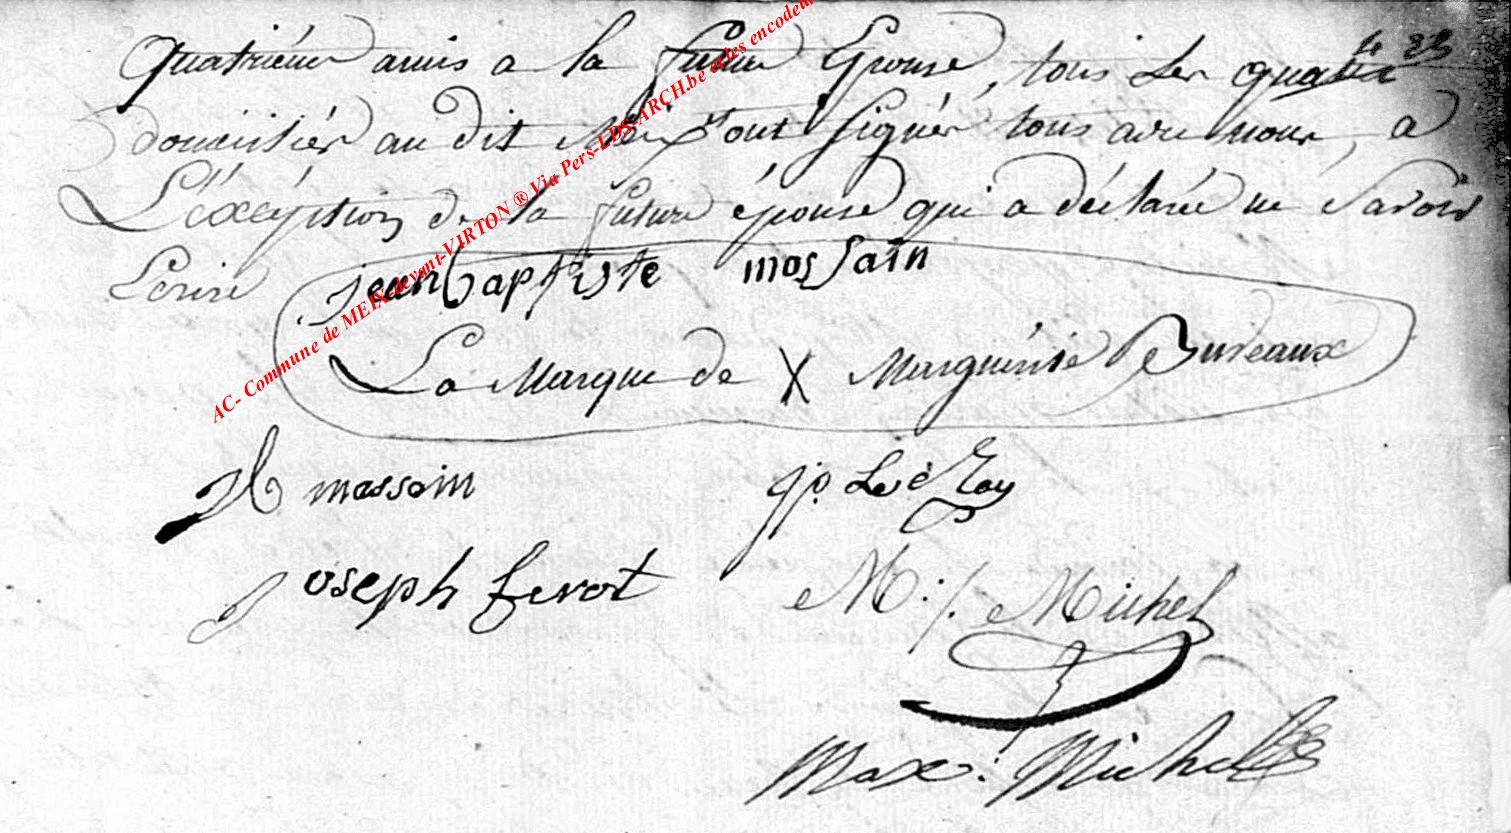 Quatriéme amis a la future Epouse, tous les quatre
domicilier au dit Meix ont signér tous avec nous, a
L'éxcéption de la future épouse qui a déclaré ne Savoir
Ecrire
jean baptiste mossain
La Marque de X Marguérite Budeaux
massoin
jp. Le Roy
joseph ferot
M: j. Michel
Max. Michel
AC- Commune de MEIX-devant-VIRTON ® Via Pers-LDS-ARCH.be et les encodeur